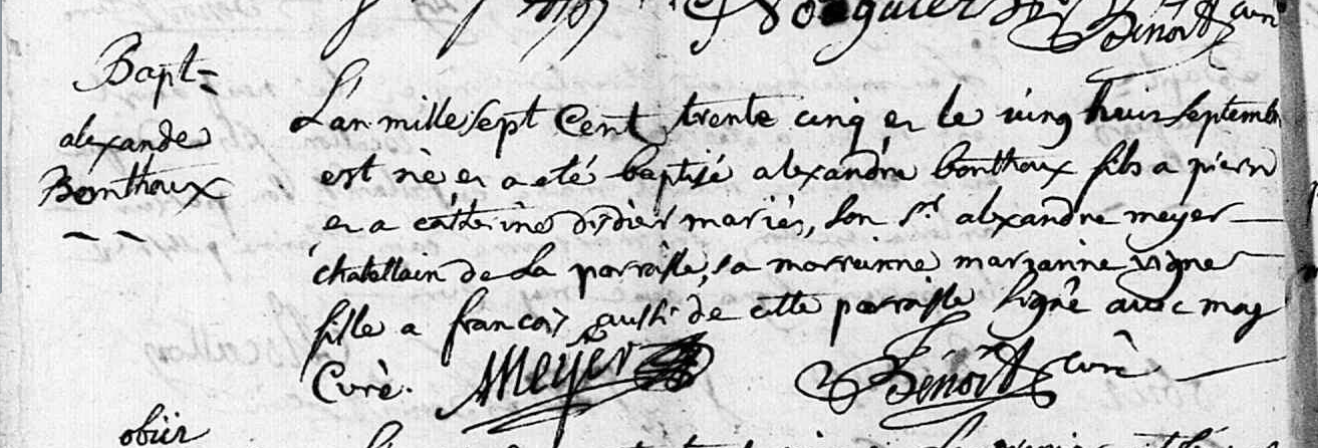 Benoit curé
Bapt=
alexandre
Bonthoux
L'an mille sept Cent trente cinq et le ving huit septembre
est né et a eté baptisé alexandre bonthoux fils a pierre
et a catterine disdier mariés, son pr alexandre meyer
chatellain de la parroisse, sa marreinne marianne vigne
fille a francois aussi de cette parroisse signé avec moy
Curé. Meyer Benoit curé
obiit